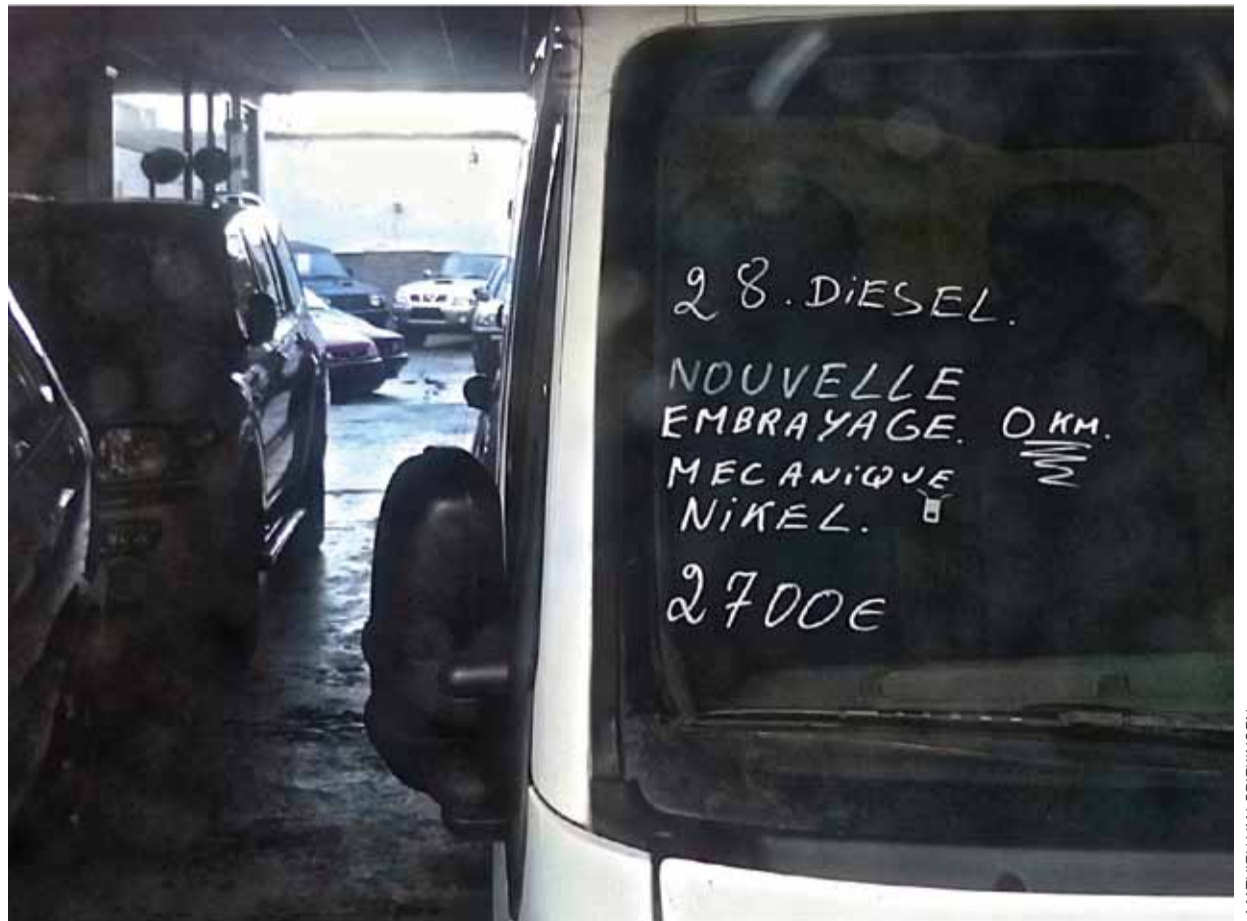 28. DiESEL.
NOUVELLE
EMBRAYAGE. 0 KM.
MECANiQUE
NiKEL.
2700€